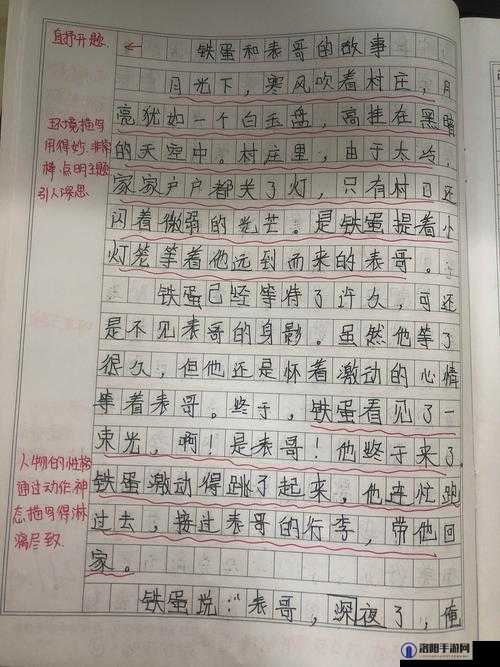 直抒开题
铁蛋和表哥的故事
月光下，寒风吹着村庄，月
亮犹如一个白玉盘，高挂在黑暗
的天空中。村庄里，由于太冷，
家家户户都关了灯，只有村口还
闪着微弱的光芒。是铁蛋提着小
灯笼等着他远到而来的表哥。
铁蛋已经等待了许久，可还
是不见表哥的身影。虽然他等了
很久，但他还是怀着激动的心情
等着表哥。终于，铁蛋看见了一
束光，啊！是表哥！他终于来了。
铁蛋激动得跳了起来，他连忙跑
过去，接过表哥的行李，带他回
家。
铁蛋说：“表哥，深夜了，俺
环境描写
用得妙，
样点明主题
引人深思
人物的性格
通过动作神
态描写得淋
漓尽致
洛阳手游网